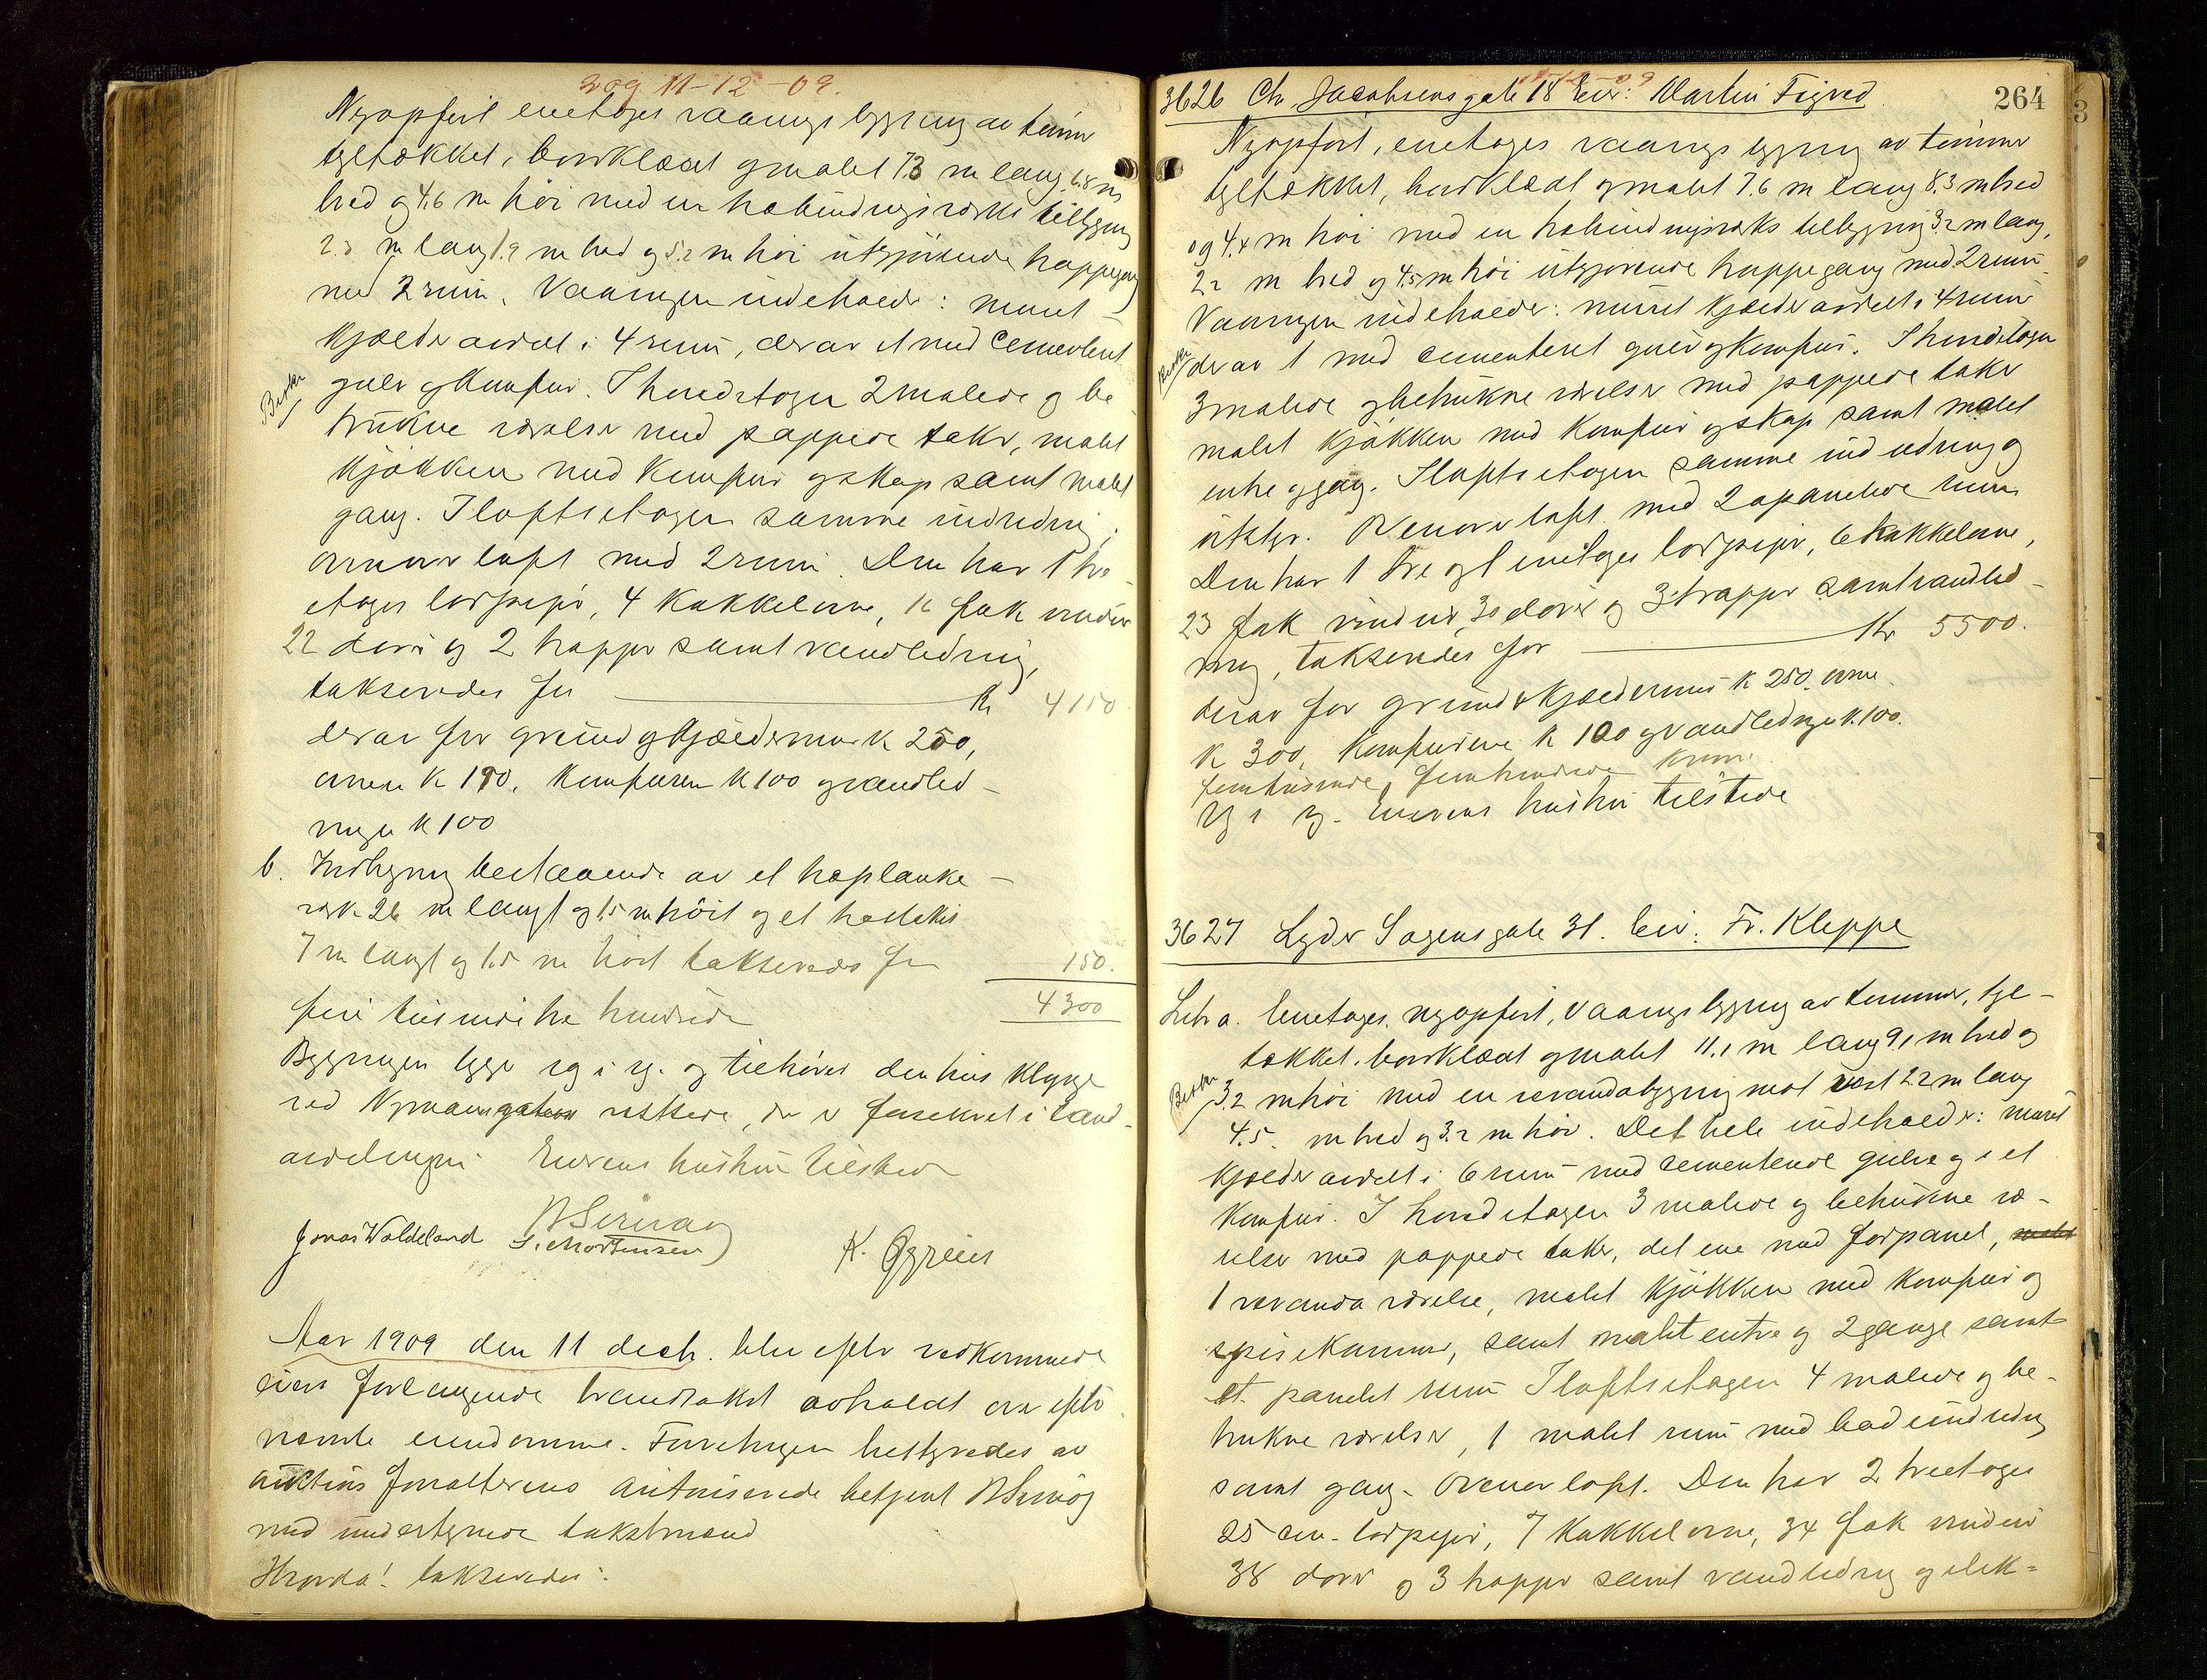 3 og 11-12-09.
Nyopført enetages vaaningsbygning av tømmer
tegltækket, bordklædt og malet 7.3 m lang 6.8 m
bred og 4.6 m høi med en trebindingsværks tilbygning
2.3 m lang 1.9 m bred og 5.2 m høi utgjörende trappegang
med 2 rum. Vaaningen indeholder: muret
kjælder avdelt i 4 rum, derav et med cementeret
Besku
gulv og komfur. I 1ste etagen 2 malede og be
trukne værelser med pappede taker, malet
kjøkken med komfur og skap samt malet
gang. I loftsetagen samme indredning,
ovenover loft med 2 rum. Den har 1 tre
etages lodpipe, 4 kakkelovne, 16 fak vinduer
22 dører og 2 trapper samt vandledning,
takseredes for Kr 4150
derav for grund og kjældermur k 250,
ovnene k 190, komfuren k 100 og vandled-
ningen k 100
b. Indhegning bestaaende av et træplanke-
verk 26 m langt og 1.5 m høit og et træstakit
7 m langt og 1.5 m høit takseredes for 150.
fire tusinde tre hundrede 4300
Bygningen ligger sg i sg. og tilhører den hus klynge
ved Nymansgaten vestside, der er forsikret i land-
avdelingen. Eierens hustru tilstede
Jonas Waldeland S. Mortensen K. Øgreid
Aar 1909 den 11 decbr. blev efter vedkommende
eiers forlangende brandtakst avholdt over efter
nævnte eiendomme. Forretningen bestyredes av
auktions forvalterens autoriserede betjent
med undertegnede takstmænd
Hvorda! takseredes:
264
3626 Chr. Jacobsens gate 18 Eier: Martin Figved
Nyopført, enetages vaaningsbygning av tømmer
tegltækket, bordklædt og malet 7.6 m lang 8.3 m bred
og 4.4 m høi med en trebindingsværks tilbygning 3.2 m lang,
2.2 m bred og 4.5 m høi utgjørende trappegang med 2 rum.
Vaaningen indeholder: muret kjælder avdelt i 4 rum
Besku
derav 1 med cementeret gulv og komfur. I 1ste etagen
3 malede og betrukne værelser med pappede taker
malet kjøkken med komfur og skap samt malet
entre og gang. I loftsetagen samme indredning og
utstyr. Ovenover loft med 2 opanelede rum
Den har 1 tre og 1 enetages lodpipe, 6 kakkelovne,
23 fak vinduer, 30 dører og 3 trapper samt vandled-
ning, takseredes for Kr 5500.
derav for grund & kjældermur k 250. ovne
k 300, komfurene k 100 og vandledningen k. 100.
femtusinde, femhundrede kroner.
Sg i sg. Eierens hustru tilstede
3627 Lyder Sagensgate 31. Eier: Fr. Kleppe
Litr a. Enetages, nyopført, vaaningsbygning av tømmer, tegl-
tækket, bordklædt og malet 11.1 m lang 9.1 m bred og
Besku
3.2 m høi med en verandabygning mot vest 2.2 m lang
4.5 m bred og 3.2 m høi. Det hele indeholder: muret
kjælder avdelt i 6 rum med cementerede gulve og i et
komfur. I 1ste etagen 3 malede og betrukne væ-
relser med pappede taker, det ene med forpanel, malet
1 veranda værelse, malet kjøkken med komfur og
spisekammer, samt malet entre og 2 gange samt
et panelet rum I loftsetagen 4 malede og be-
trukne værelser, 1 malet rum med badeindredning
samt gang. Ovenover loft. Den har 2 treetages
25 cm. lodpiper, 7 kakkelovne, 34 fak vinduer
38 dører og 3 trapper samt vandledning og elek=